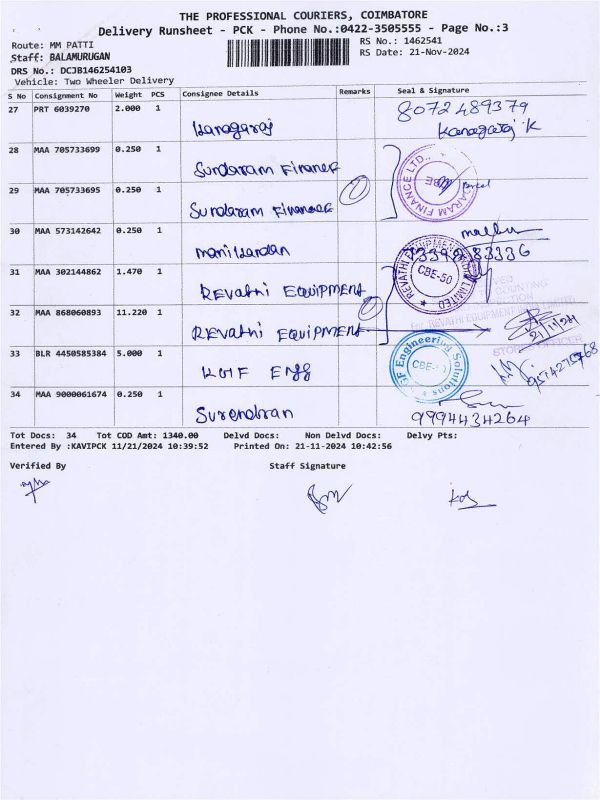 THE PROFESSIONAL COURIERS, COIMBATORE
Delivery Runsheet - PCK - Phone No.:0422-3505555 - Page No.:3
Route: MM PATTI RS No.: 1462541
Staff: BALAMURUGAN RS Date: 21-Nov-2024
DRS No.: DCJB146254103
Vehicle: Two Wheeler Delivery
S No Consignment No Weight PCS Consignee Details Remarks Seal & Signature
27 PRT 6039270 2.000 1 Kanagaraj 8072489379
Kanagaraj K
28 MAA 705733699 0.250 1 Sundaram Finance
29 MAA 705733695 0.250 1 Sundaram Finance
30 MAA 573142642 0.250 1 Manikandan
31 MAA 302144862 1.470 1 REvathi EQUIPMENT
REVATHI EQUIPMENT LIMITED CBE-50
32 MAA 868060893 11.220 1 REvathi EQUIPMENT
21/11/24
33 BLR 4450585384 5.000 1 KGF Engg
GF Engineering Solutions CBE
34 MAA 9000061674 0.250 1 Surendran 9994434264
Tot Docs: 34 Tot COD Amt: 1340.00 Delvd Docs: Non Delvd Docs: Delvy Pts:
Entered By :KAVIPCK 11/21/2024 10:39:52 Printed On: 21-11-2024 10:42:56
Verified By Staff Signature